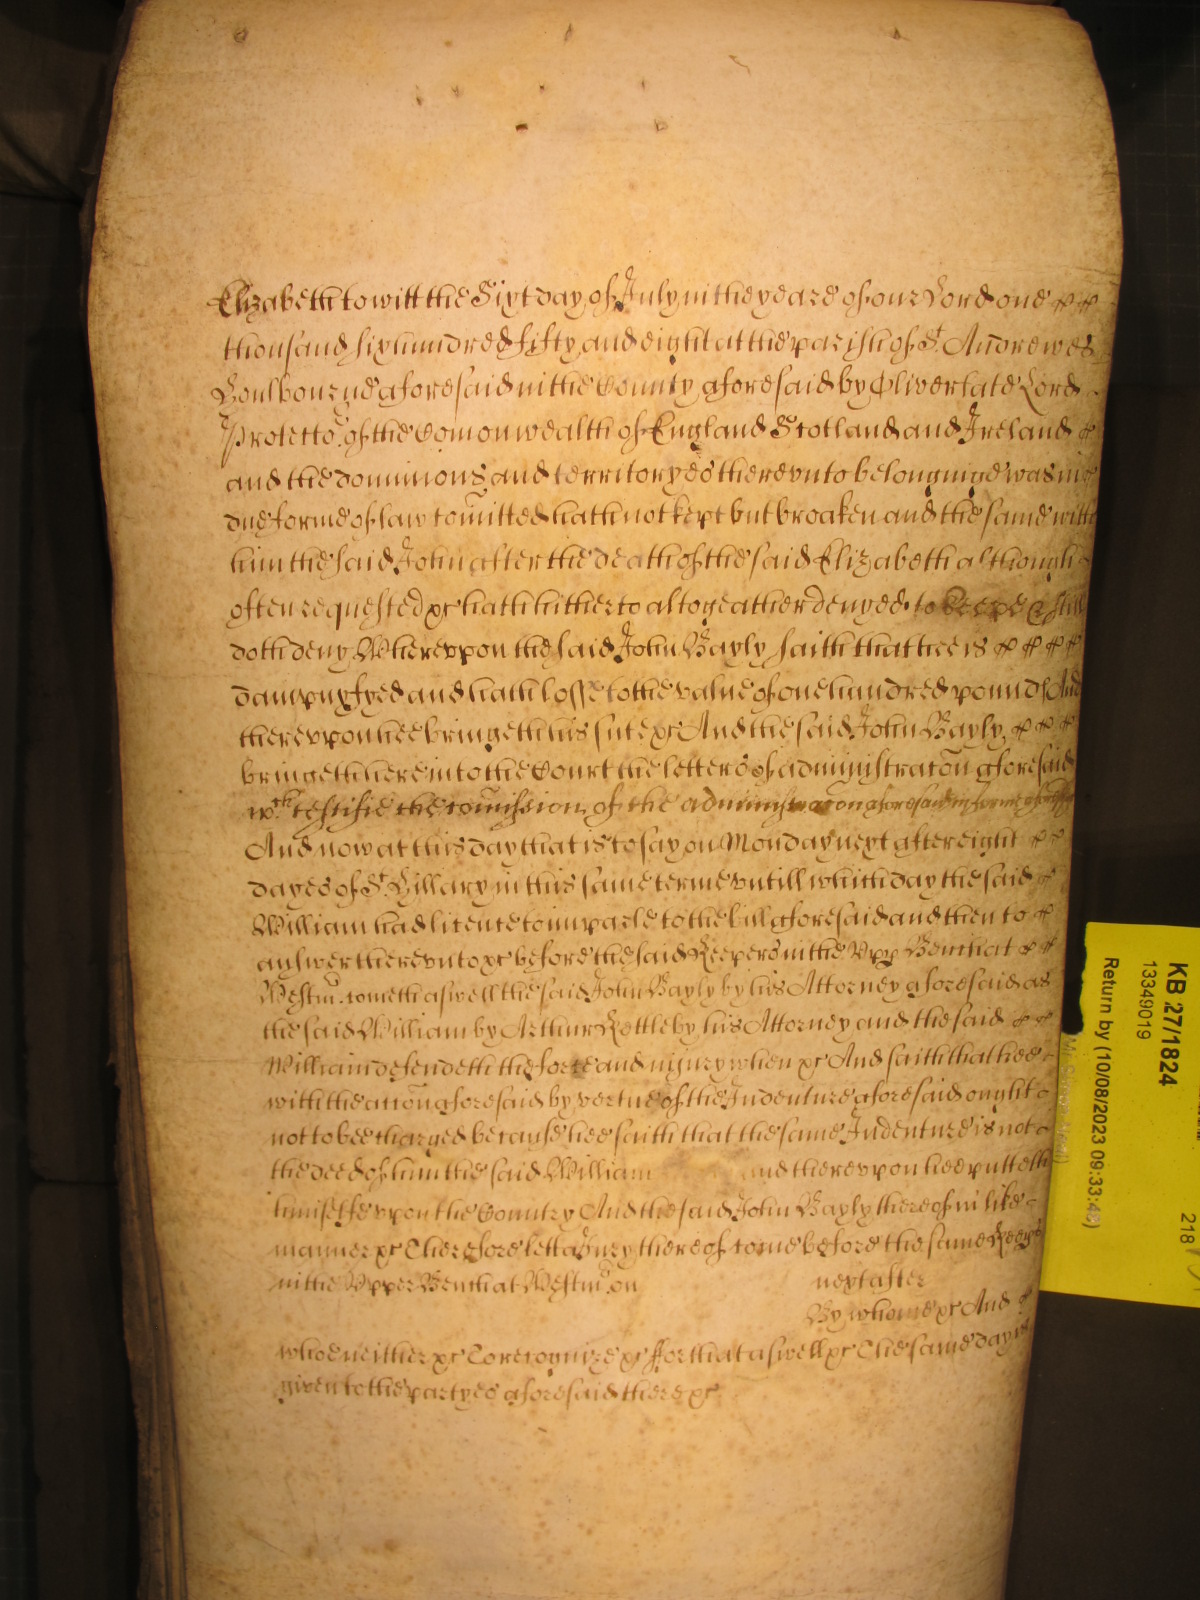 Elizabeth to witt the Sixt day of July in the yeare of our Lord one
thousand six hundred fifty and eight at the parish of St. Andrewes
Goulbourne aforesaid in the County aforesaid by Oliver late Lord
Protector of the Comonwealth of England Scotland and Ireland
and the dominions and territoryes therevnto belonginge was in
due forme of law comitted hath not kept but broaken and the same with
him the said John after the death of the said Elizabeth although
often requested &c hath hitherto altogeather denyed to keepe & still
doth deny Wherevpon the said John Bayly saith that hee is
dampnyfyed and hath losse to the value of one hundred pounds And
therevpon hee bringeth his sute &c And the said John Bayly
bringeth here into the Court the letters of administracon aforesaid
wch testifie the comission of the administracon aforesaid in forme aforesaid
And now at this day that is to say on Monday next after eight
dayes of St. Hillary in this same terme vntill which day the said
William had licence to imparle to the bill aforesaid and then to
answer therevnto &c before the said Keepers in the Vpp Bench at
Westmr. cometh aswell the said John Bayly by his Attorney aforesaid as
the said William by Arthur Kettleby his Attorney and the said
William defendeth the force and iniury when &c And saith that hee
with the accon aforesaid by vertue of the Indenture aforesaid ought
not to bee charged because hee saith that the same Indenture is not
the deed of him the said William and therevpon hee putteth
himselfe vpon the Country And the said John Bayly thereof in like
manner &c Therefore lett a Jury thereof come before the same Keeprs
in the Vpper Bench at Westmr. on next after
By whome &c And
whoe neither &c To recognize &c Forthat aswell &c The same day is
given to the partyes aforesaid there &c
KB 27/1824
13349019
Return by (10/08/2023 09:33:48)
218